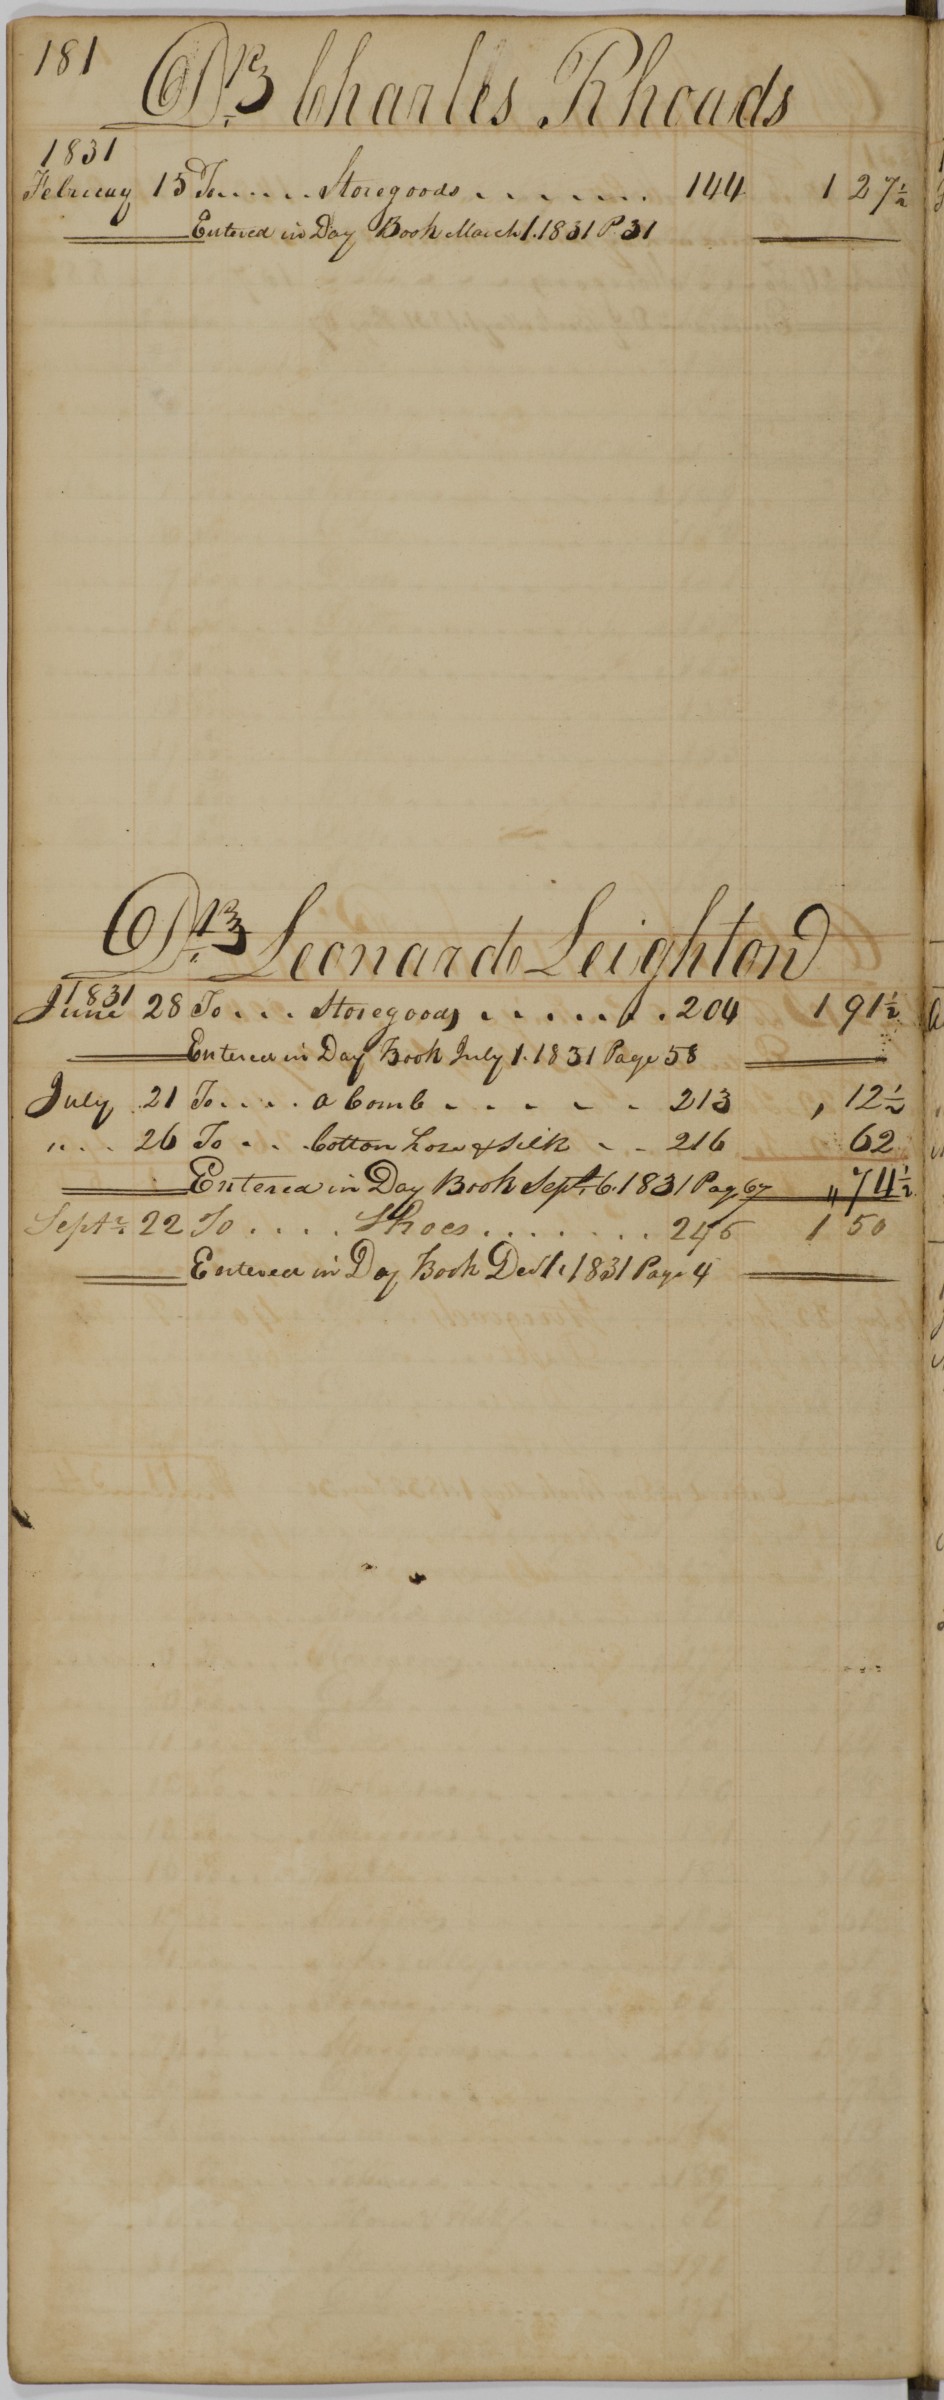 181
Dr. Charles Rhoads
1831
February 15 To . . . . . Storegoods . . . . . . . 144 1 27½
Entered in Day Book March 1. 1831 P 31
Dr. Leonard Leighton
1831
June 28 To . . . Storegoods . . . . . . . 204 1 91½
Entered in Day Book July 1. 1831 Page 58
July 21 To . . . . a Comb . . . . . 213 , 12½
" . . 26 To . . . Cotton hose & silk . . . 216 62
Entered in Day Book Sept. 6. 1831 Page 67 " 74½
Septr. 22 To . . . . Shoes . . . . . . . 245 1 50
Entered in Day Book Dec 1. 1831 Page 4